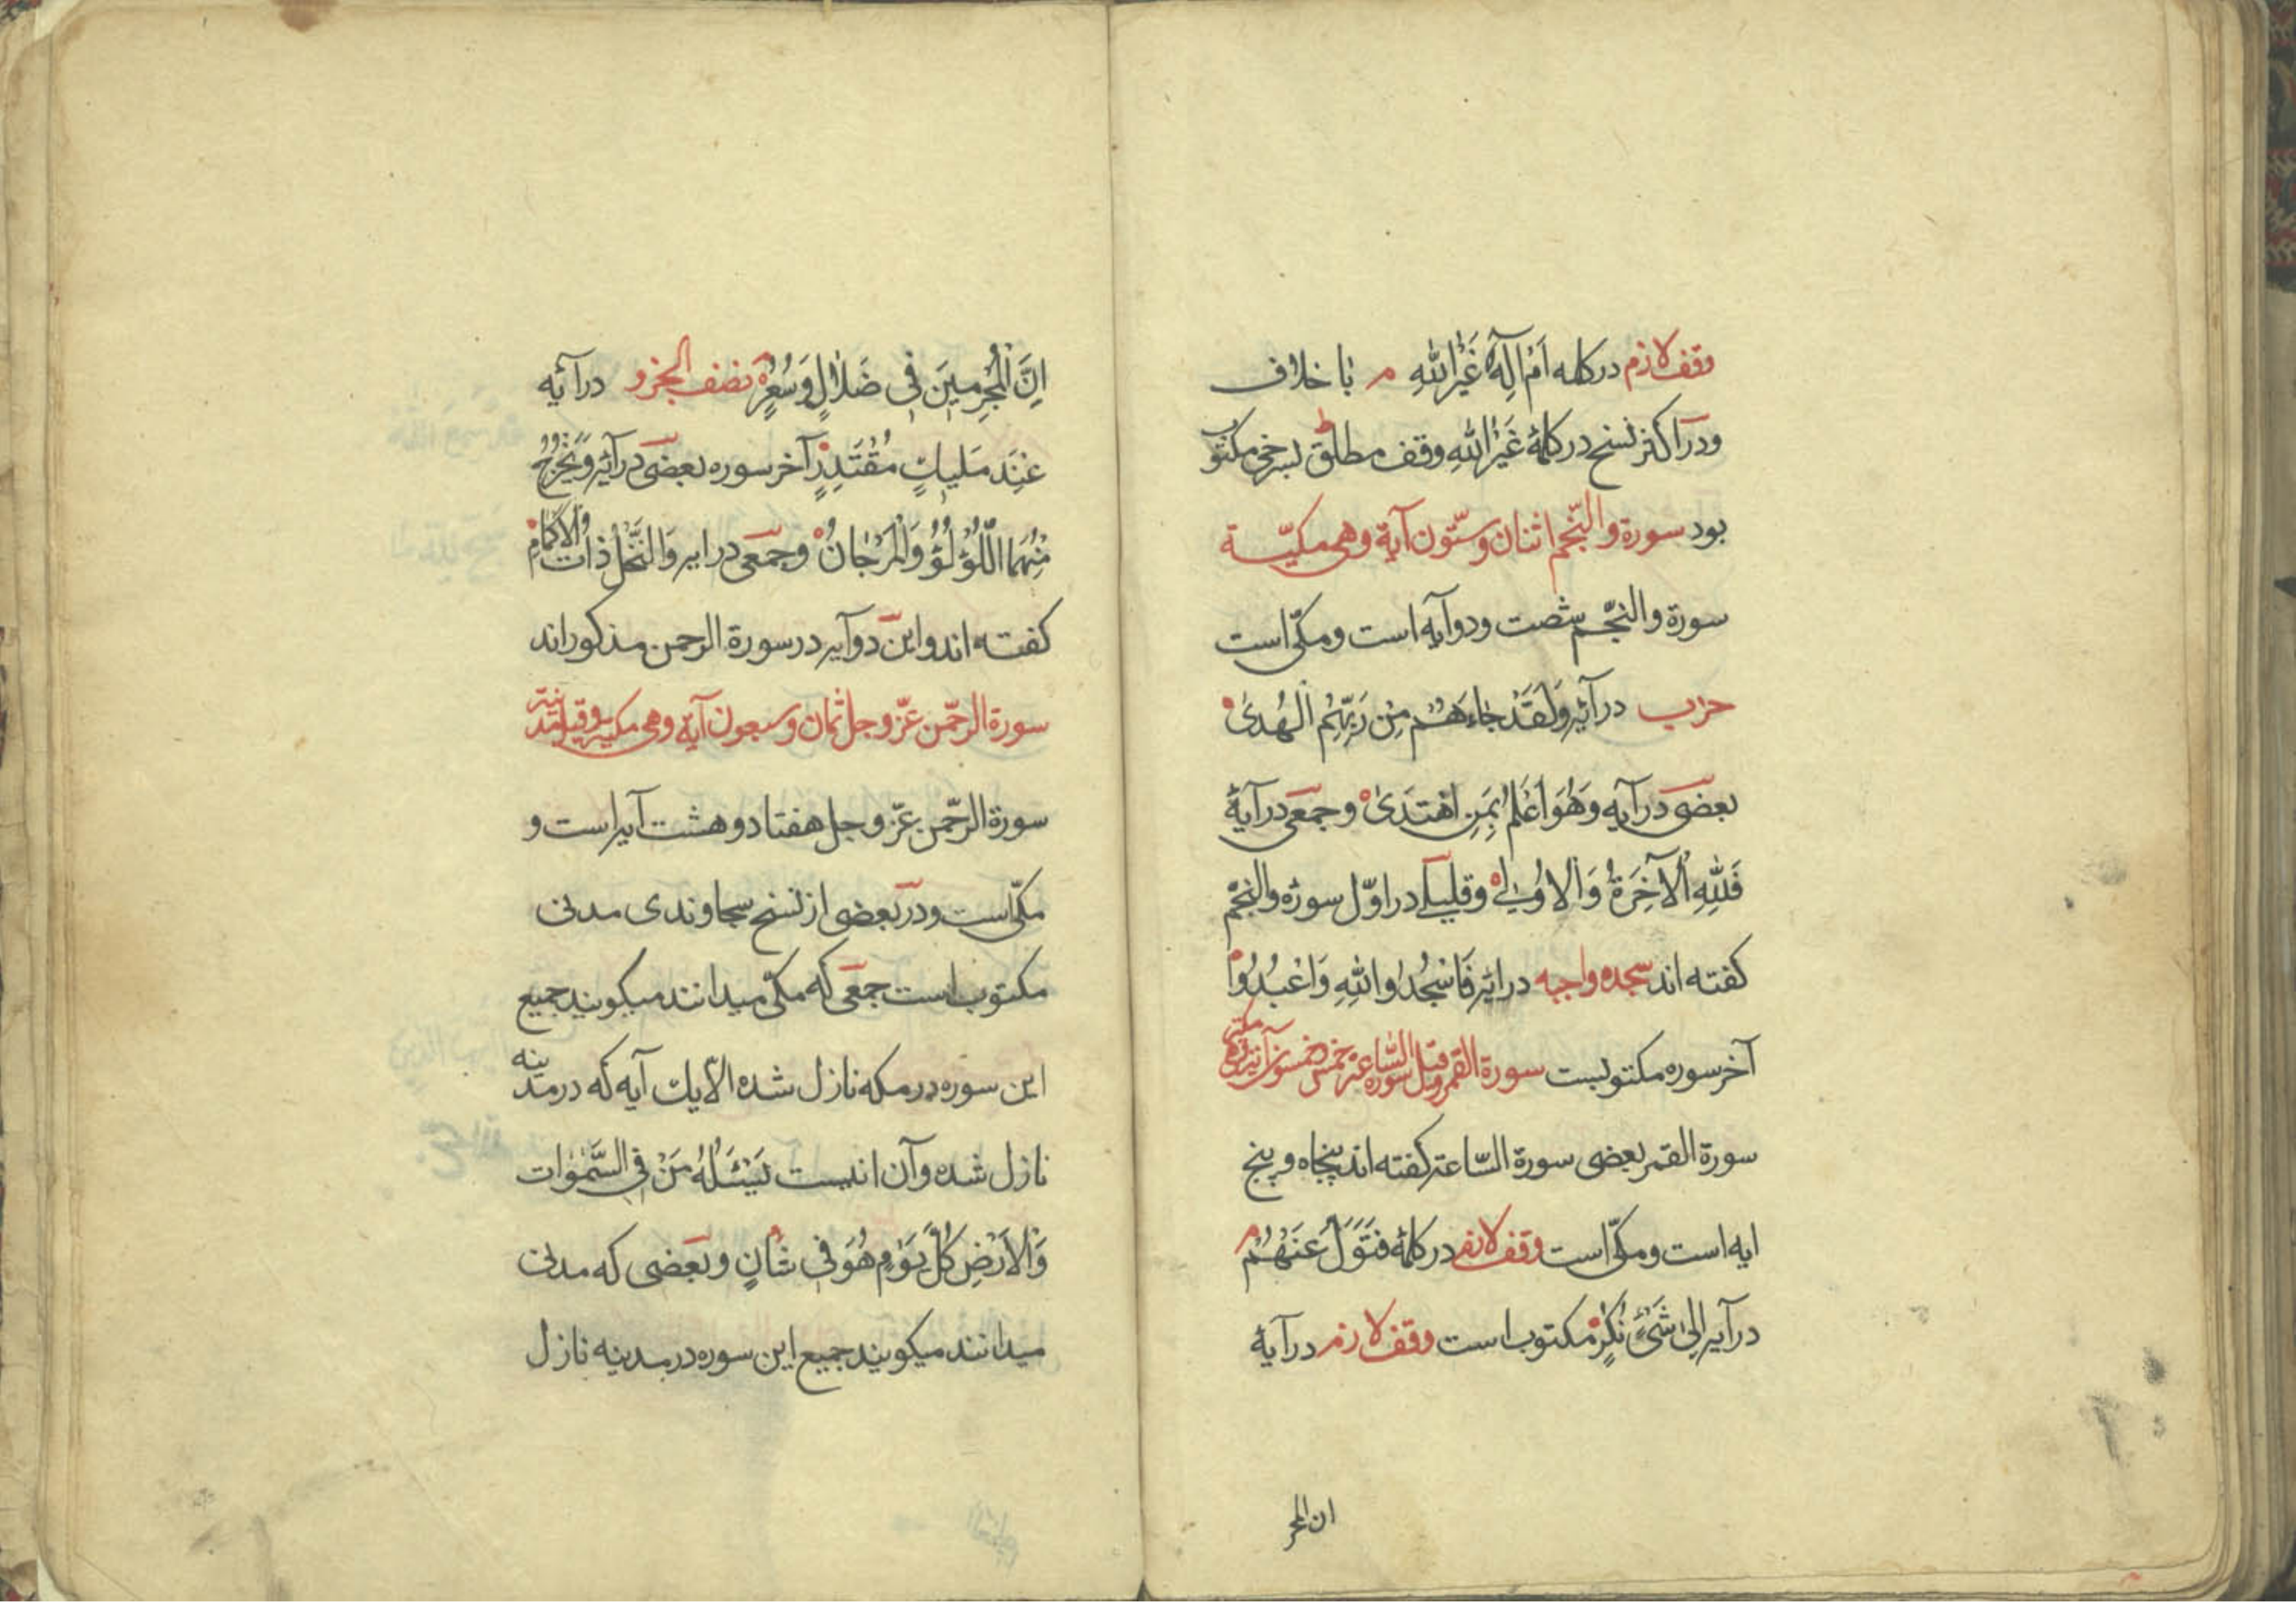 وقف لازم در کلمه اَمْ اِلٰهٌ غَیْرُ اللّٰهِ م با خلاف
ودر اکثر نسخ در کلمهٔ غَیْرُ اللّٰهِ وقف مطلق ط بسرخی مکتوب
بود سورة والنّجم اثنان وستّون آیة وهی مکیّـة
سورة والنّجم شصت ودو آیه است ومکّی است
حزب در آیه وَلَقَدْ جَاءَهُمْ مِنْ رَبِّهِمُ الْهُدیٰ
بعضی در آیه وَهُوَ اَعْلَمُ بِمَنِ اهْتَدیٰ وجمعی در آیهٔ
فَلِلّٰهِ الْآخِرَةُ وَالْاُولیٰ وقلیلی در اوّل سوره والنجم
کفته اند سجده واجبه در آیه فَاسْجُدُوا لِلّٰهِ وَاعْبُدُوا
آخر سوره مکتوبست سورة القمر وقیل سورة السّاعة خمس وخمسون آیة وهی مکیّة
سورة القمر بعضی سورة السّاعة کفته اند پنجاه و پنج
ایه است ومکّی است وقف لازم در کلمهٔ فَتَوَلَّ عَنْهُمْ م
در آیه اِلیٰ شَیْءٍ نُکُرٍ مکتوب است وقف لازم در آیهٔ
ان المجر
اِنَّ الْمُجْرِمِینَ فِی ضَلَالٍ وَسُعُرٍ نصف الجزو در آیه
عِنْدَ مَلِیكٍ مُقْتَدِرٍ آخر سوره بعضی در آیه وَیَخْرُجُ
مِنْهُمَا اللُّؤْلُؤُ وَالْمَرْجَانُ وجمعی در ایه وَالنَّخْلُ ذَاتُ الْاَکْمَامِ
کفته اند واین دو آیه در سورة الرحمن مذکور اند
سورة الرحّمن عزّ وجل ثمان وسبعون آیة وهی مکیة وقیل مدنیّة
سورة الرحّمن عزّ وجل هفتاد و هشت آیه است و
مکّی است ودر بعضی از نسخ سجاوندی مدنی
مکتوب است جمعی که مکّی میدانند میکویند جمیع
این سوره در مکه نازل شده الّا یك آیه که در مدینه
نازل شده وآن اینست یَسْئَلُهُ مَنْ فِی السَّمٰوَات
وَالْاَرْضِ کُلَّ یَوْمٍ هُوَ فِی شَانٍ وبعضی که مدنی
میدانند میکویند جمیع این سوره در مدینه نازل